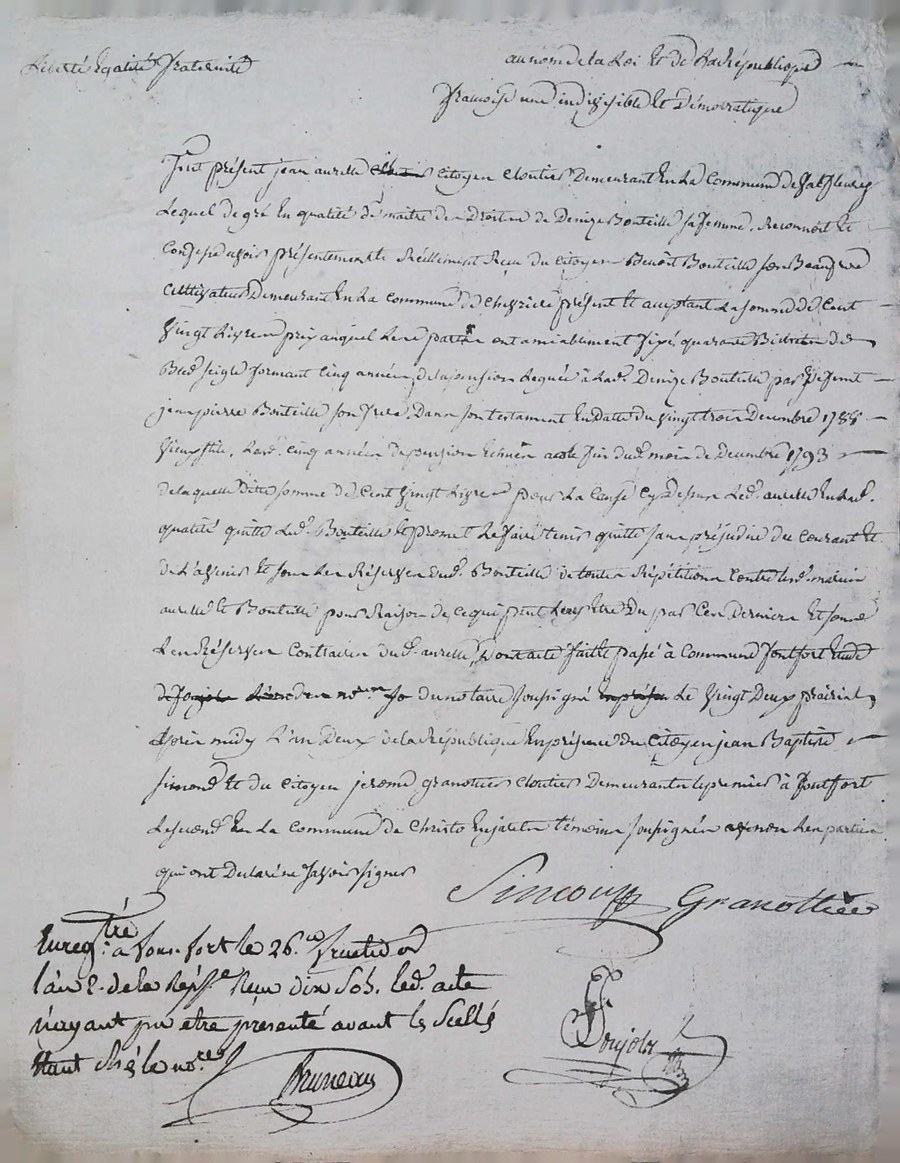 Liberté Egalité fraternité
au nom de la Loi Et de La république
francoise une indivisible Et Démocratique
fut présent jean aurelle citoyen cloutier Demeurant En La Commune de Valfleury
Lequel de gré En qualité de maitre des Droits de Denize Bouteille sa femme, Reconnoit Et
Confesse avoir présentement Et Réellement Reçu du Citoyen Benoit Bouteille son Beaufrere
Cultivateur Demeurant En La Commune de Chevrieres présent Et acceptant La somme de Cent
Vingt Livres prix auquel Les parties ont amiablement fixé, quarante Bichets de
Bled seigle formant Cinq années de la pension Leguée à Lad. Denize Bouteille par défunt
jean pierre Bouteille son frere, Dans son testament En Datte du Vingt trois Decembre 1788
Vieux stile, Lesd. Cinq années de pension Echues a la fin dud. mois de Decembre 1793
de laquelle ditte somme de Cent Vingt Livres pour La Cause Cy dessus Led. aurelle En lad.
qualité quitte Led. Bouteille Et promet Le faire tenir quitte sans préjudice du Courant Et
de L'avenir Et sous Les Réserves dud. Bouteille de toutes Répétitions Contre Lesd. mariés
aurelle Et Bouteille pour Raison de Ce qui peut Leur Etre Du par Ces Derniers Et sous
Les Réserves Contraires dud. aurelle, Dont acte fait Et passé à Commune fontfort Etude
du notaire soussigné Le Vingt Deux prairial
après midy L'an Deux de la République En présence du Citoyen jean Baptiste
simond Et du Citoyen jerome granottier cloutier Demeurants Le premier à fontfort
Le second En La Commune de Christo En jarret témoins soussignés Et non Les parties
qui ont Declaré ne savoir signer
Granottier
Enregtré à fons-fort le 26. fructidor
l'an 2. de la Repe Reçu dix sols. led. acte
n'ayant pu etre présenté avant les Scellés
étant chés le nore
Bruneau
Poujola